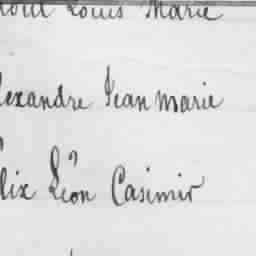 Louis Marie
lexandre Jean marie
lix Léon Casimir